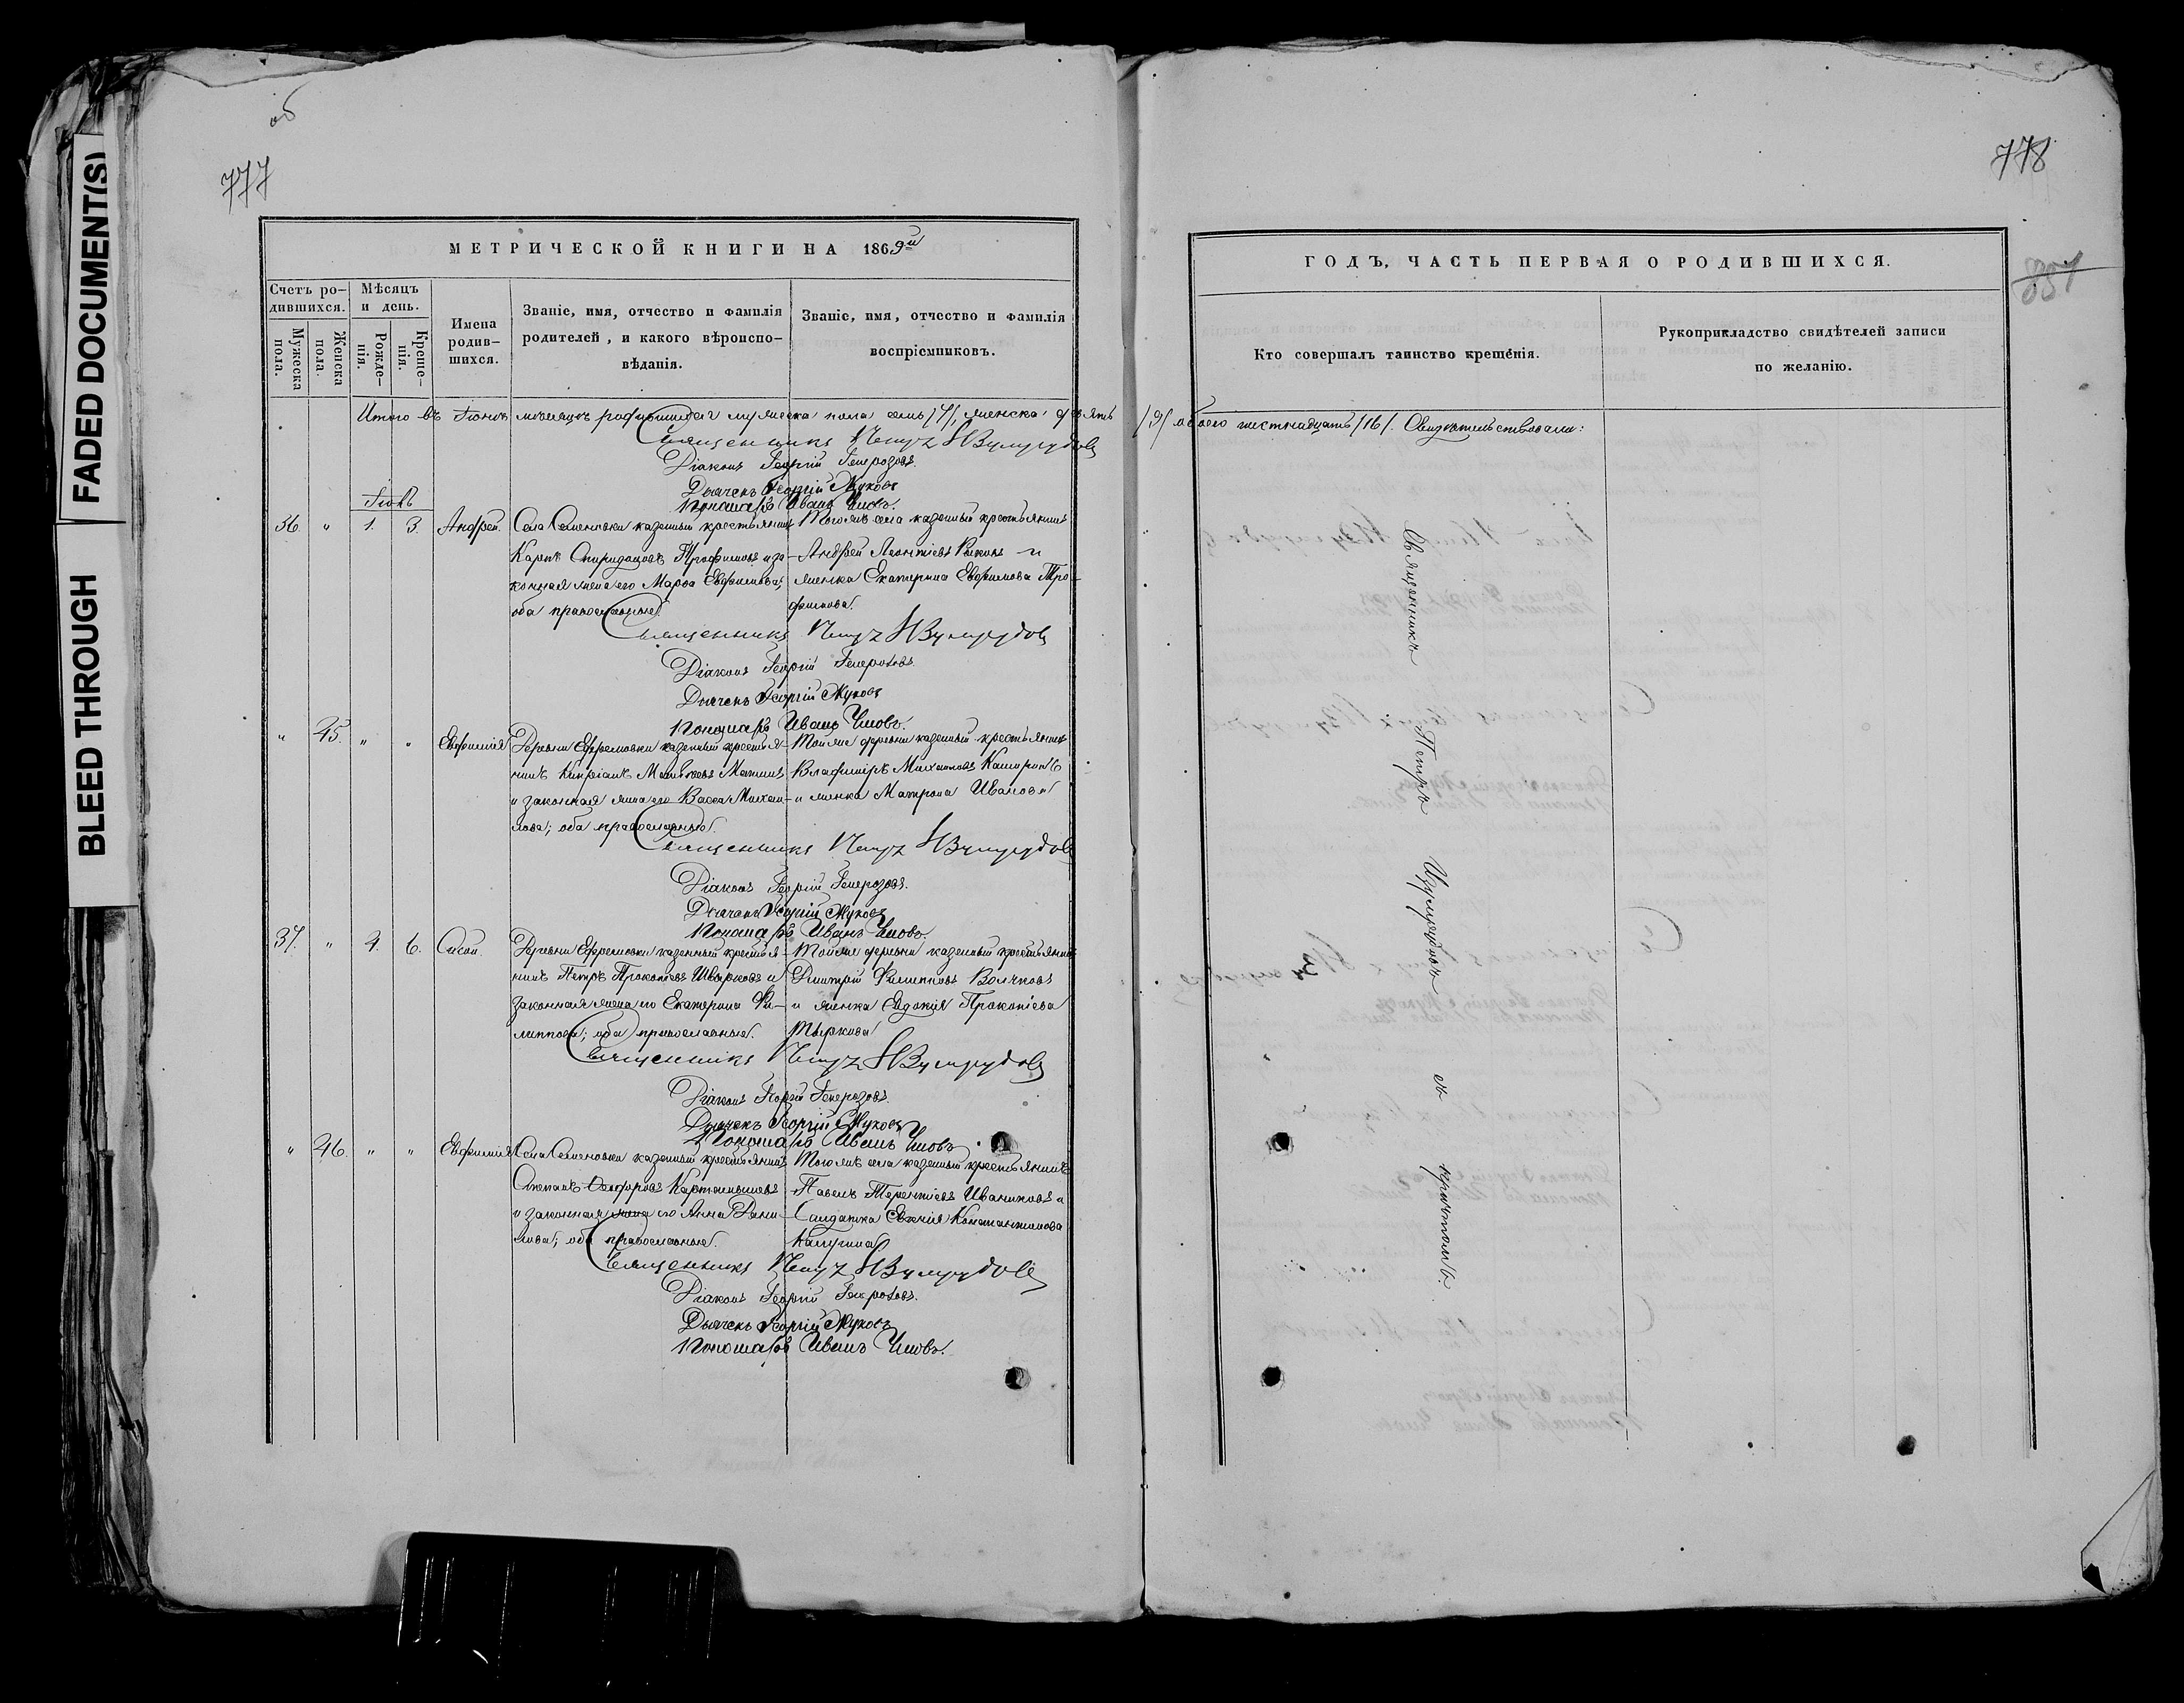 об
777
778
851
FADED DOCUMENT(S)
BLEED THROUGH
МЕТРИЧЕСКОЙ КНИГИ НА 1869й
ГОДЪ, ЧАСТЬ ПЕРВАЯ О РОДИВШИХСЯ.
Счетъ ро-
дившихся.
Мужеска
пола.
Женска
пола.
Мѣсяцъ
и день.
Рожде-
нія.
Креще-
нія.
Имена
родив-
шихся.
Званіе, имя, отчество и фамилія
родителей, и какого вѣроиспо-
вѣданія.
Званіе, имя, отчество и фамилія
воспріемниковъ.
Кто совершалъ таинство крещенія.
Рукоприкладство свидѣтелей записи
по желанію.
Итого въ Іюнѣ мѣсяцѣ родившихся мужеска пола семь /7/, женска девять /9/ обоего шестнадцать /16/. Свидѣтельствовали:
Священникъ Петръ Изумрудовъ
Діаконъ Георгій Генерозовъ.
Дьячекъ Георгій Жуковъ
Пономарь Иванъ Умовъ.
Іюль
36. " 1. 3. Андрей.
Села Семеновки казенный крестьянинъ
Карпъ Спиридоновъ Трофимовъ и за-
конная жена его Марѳа Евфимова;
оба православные.
Того же села казенный крестьянинъ
Андрей Леонтіевъ и
женка Екатерина Евфимова Тро-
фимова.
Священникъ Петръ Изумрудовъ
Діаконъ Георгій Генерозовъ.
Дьячекъ Георгій Жуковъ
Пономарь Иванъ Умовъ.
" 45. " " Евфимія
Деревни Ефремовки казенный крестья-
нинъ Кипріанъ
и законная жена его Васса Михаи-
лова; оба православные.
Той же деревни казенный крестьянинъ
Владиміръ Михаиловъ
и женка Матрона Иванова
Священникъ Петръ Изумрудовъ
Діаконъ Георгій Генерозовъ.
Дьячекъ Георгій Жуковъ
Пономарь Иванъ Умовъ.
37. " 4. 6. Сисой.
Деревни Ефремовки казенный крестья-
нинъ Петръ Прокопіевъ и
законная жена его Екатерина Фи-
липпова; оба православные.
Той же деревни казенный крестьянинъ
Димитрій Филипповъ Волчковъ
и женка Евдокія Прокопіева
Священникъ Петръ Изумрудовъ
Діаконъ Георгій Генерозовъ.
Дьячекъ Георгій Жуковъ
Пономарь Иванъ Умовъ
" 46. " " Евфимія
Села Семеновки казенный крестьянинъ
Степанъ Ѳеодоровъ Картамышевъ
и законная жена его Анна Дани-
лова; оба православные.
Того же села казенный крестьянинъ
Павелъ Терентіевъ Иваниковъ и
Солдатка Евгенія Константинова
Священникъ Петръ Изумрудовъ
Діаконъ Георгій Генерозовъ.
Дьячекъ Георгій Жуковъ
Пономарь Иванъ Умовъ.
Священникъ Петръ Изумрудовъ съ причтомъ.